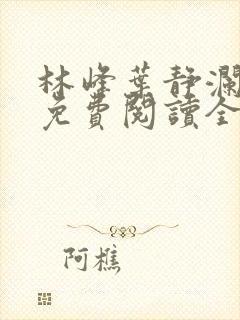 林峰葉靜瀾
免費閱讀全
阿樵